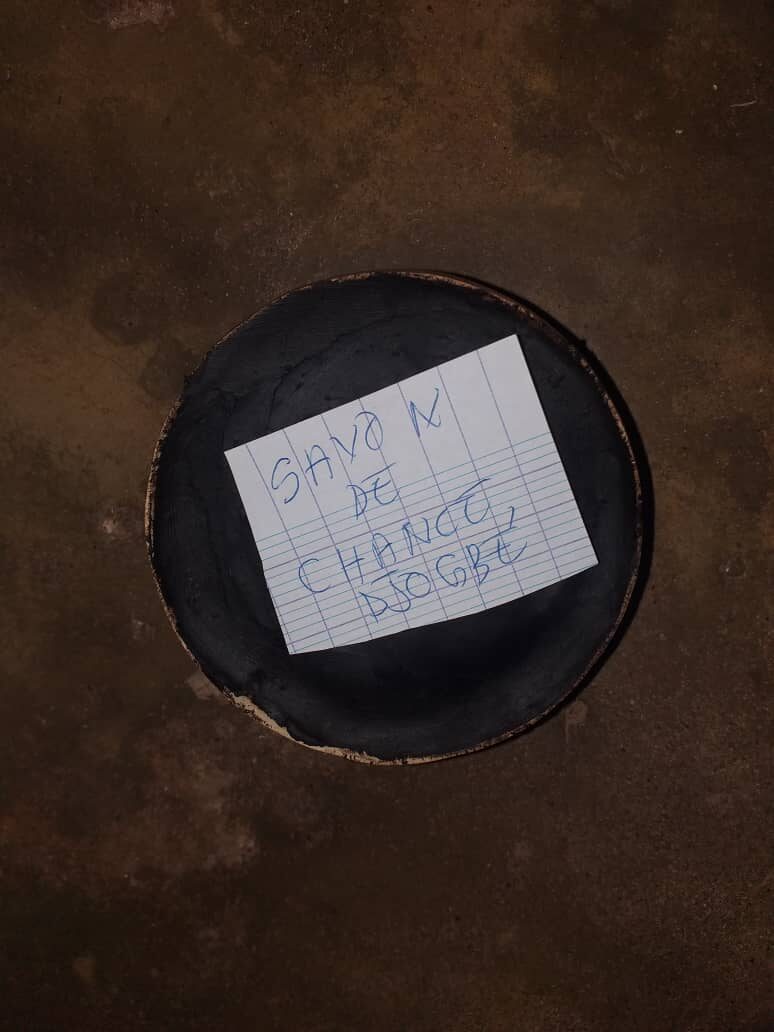 SAVON
DE
CHANCE,
DJOGBÉ